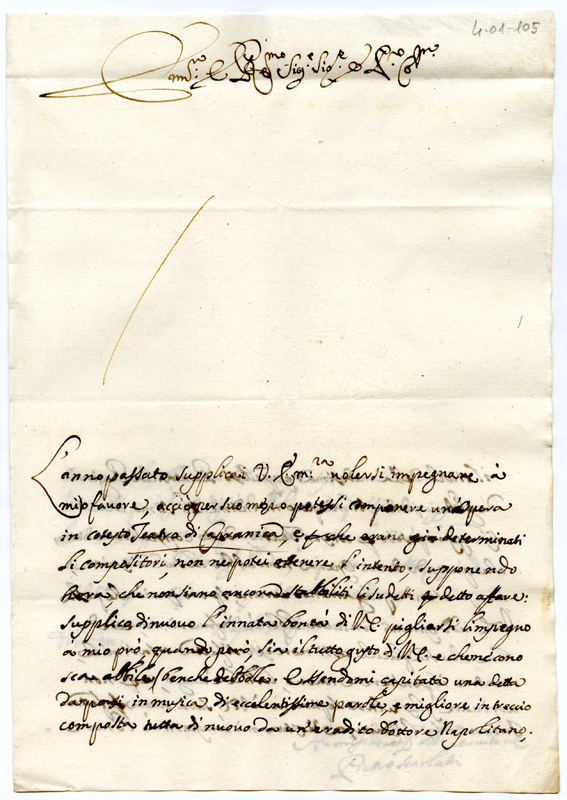 4-01-105
Em.mo e R.mo Sig.r Sig.r e P.ron Col.mo
L'anno passato supplicai V. Em.za volersi impegnare à
mio favore, acciò per suo mezo potessi componere un'Opera
in cotesto Teatro di Capranica, e che erano già determinati
li compositori, non ne potei ottenere l'intento. Supponendo
hora, che non siano ancora stabbiliti li sudetti detto affare:
supplico di nuovo l'innata bontà di V.E. pigliarsi l'impegno
à mio prò, quando però sia il tutto gusto di V.E. e che mi cono
sca abbile benche debbole. Essendomi capitata una detta
da porsi in musica di eccelentissime parole, e migliore intreccio
composta tutta di nuovo da un'erudito Dottore Napolitano,